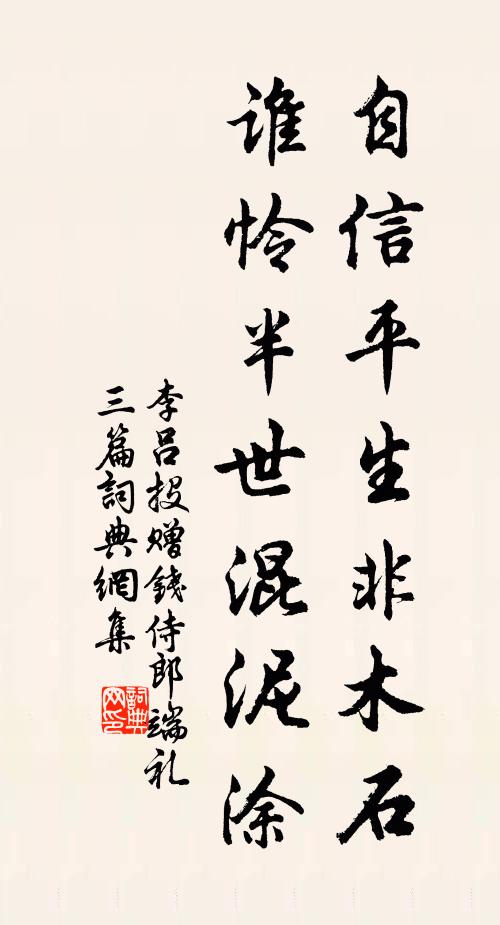 自信平生非木石
谁怜半世混泥涂
李吕投赠钱侍郎端礼
三篇词典网集
词典网印